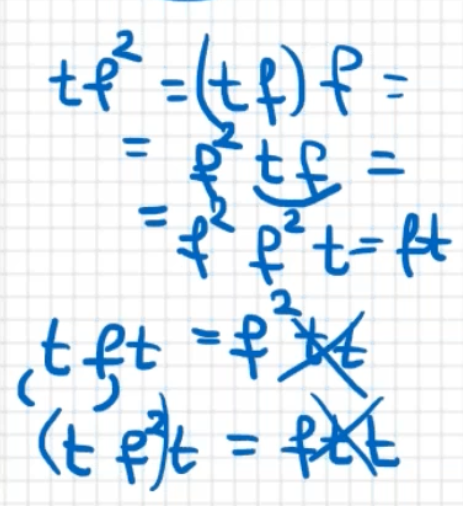 tf² = (tf) f =
= f² tf =
= f² f² t = ft
tft = f² tt
(t f²)t = ftt